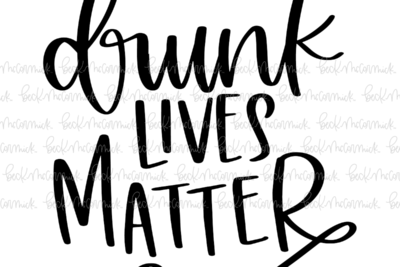 drunk
LIVES
MATTER